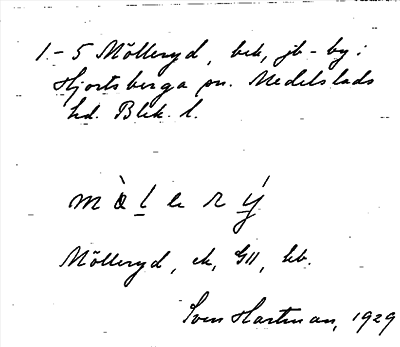 1-5 Mölleryd, bek, jb-by i
Hjortsberga sn. Medelstads
hd. Blek. l.
mò̀l e r ý
Mölleryd, ek, GII, kb.
Sven Hartman, 1929